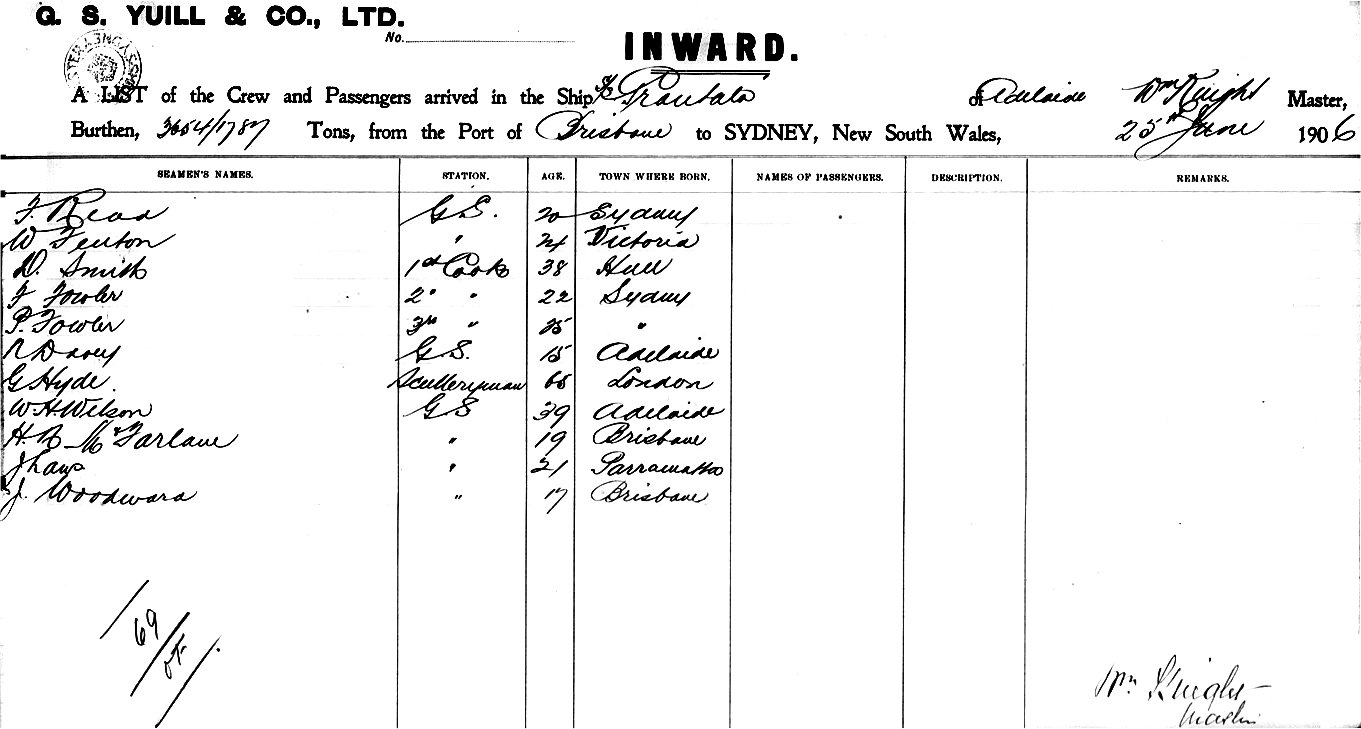 G. S. YUILL & CO., LTD.
No.
INWARD.
A LIST of the Crew and Passengers arrived in the Ship Grantala of Adelaide Wm Knight Master,
Burthen, 3654/1787 Tons, from the Port of Brisbane to SYDNEY, New South Wales, 25th June 1906
SEAMEN'S NAMES. STATION. AGE. TOWN WHERE BORN. NAMES OF PASSENGERS. DESCRIPTION. REMARKS.
F. Read G.S. 20 Sydney
W Fenton " 24 Victoria
D. Smith 1st Cook 38 Hull
F Fowler 2" " 22 Sydney
P. Fowler 3rd " 25 "
R Davey G.S. 15 Adelaide
G Hyde. Sculleryman 65 London
W.H. Wilson G.S 39 Adelaide
H.B McFarlane " 19 Brisbane
J " 21 Parramatta
J. Woodward " 17 Brisbane
69
Wm Knight
Master